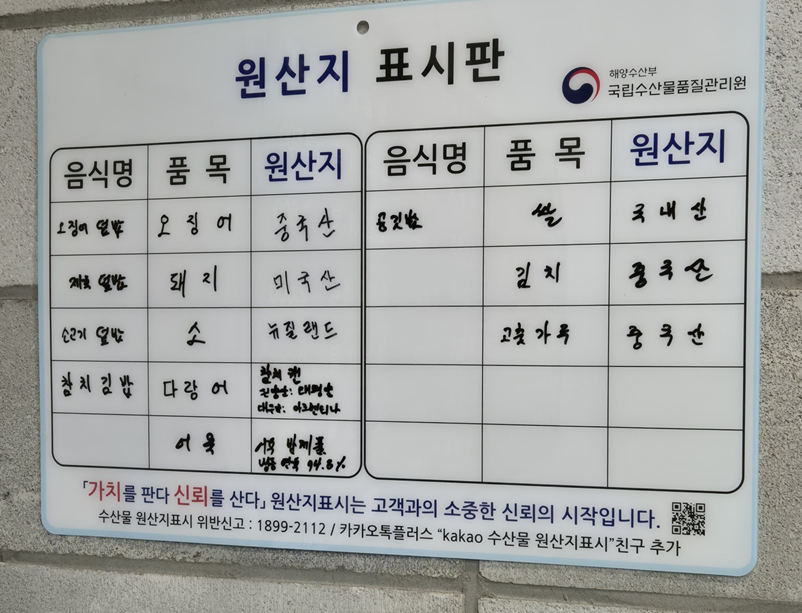 원산지 표시판
해양수산부
국립수산물품질관리원
음식명 품 목 원산지
오징어 덮밥 오징어 중국산
제육 덮밥 돼지 미국산
소고기 덮밥 소 뉴질랜드
참치김밥 다랑어 참치캔
원양산: 태평양
어묵
냉동연육 94.8%
음식명 품 목 원산지
공깃밥 쌀 국내산
김치 중국산
고춧가루 중국산
「가치를 판다 신뢰를 산다」 원산지표시는 고객과의 소중한 신뢰의 시작입니다.
수산물 원산지표시 위반신고 : 1899-2112 / 카카오톡플러스 "kakao 수산물 원산지표시"친구 추가